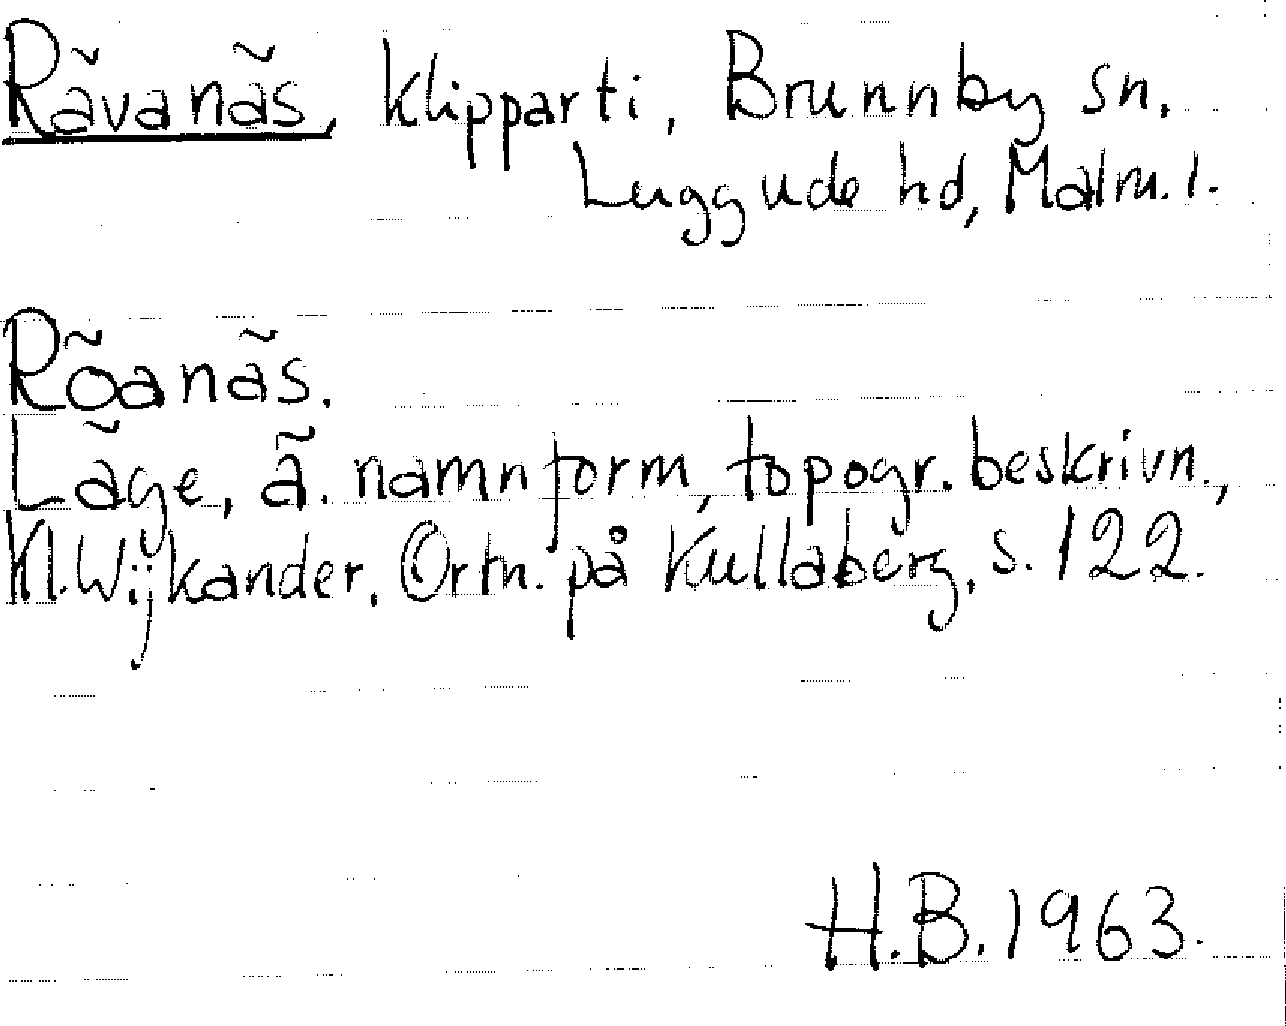 Rävanäs, Klipparti, Brunnby sn.
Luggude hd, Malm. l.
Röanäs.
Läge, ä. namnform, topogr. beskrivn.,
Kl. Wijkander. Ortn. på Kullaberg, s. 122.
H.B. 1963.